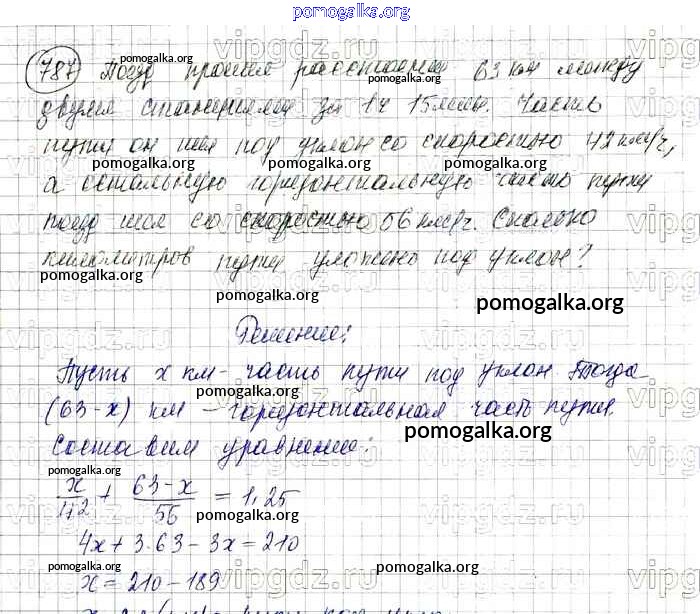 pomogalka.org
787 Поезд прошел расстояние 63 км между
двумя станциями за 1ч 15мин. Часть
пути он шел под уклон со скоростью 42 км/ч,
а остальную горизонтальную часть пути
поезд шел со скоростью 56 км/ч. Сколько
километров пути уложено под уклон?
pomogalka.org
Решение:
Пусть x км - часть пути под уклон. Тогда
(63-x) км - горизонтальная часть пути.
pomogalka.org
Составим уравнение:
x/42 + 63-x/56 = 1,25
4x + 3·63 - 3x = 210
x = 210 - 189